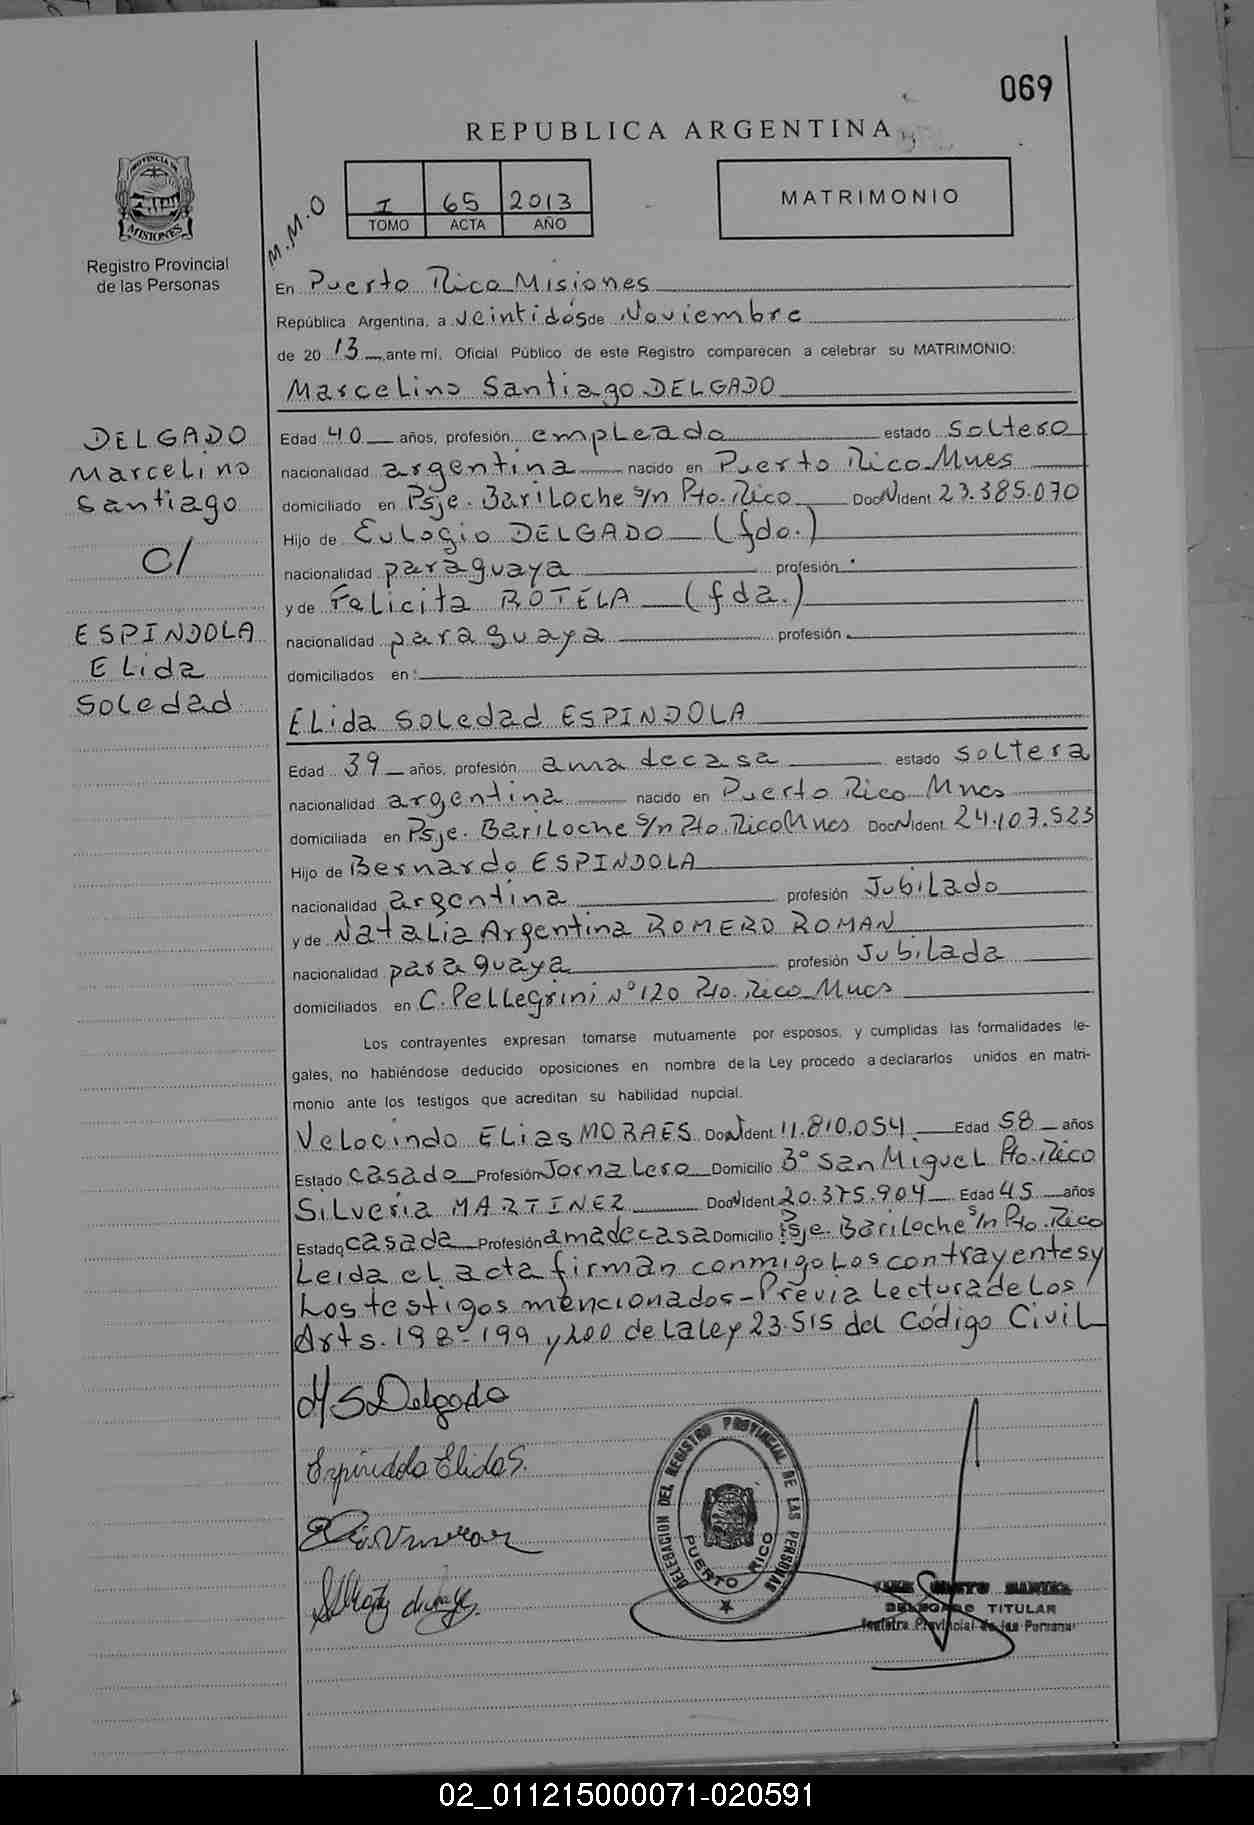 069
REPUBLICA ARGENTINA
PROVINCIA DE MISIONES
Registro Provincial
de las Personas
M.M.O
I 65 2013
TOMO ACTA AÑO
MATRIMONIO
En Puerto Rico Misiones
República Argentina, a veintidós de Noviembre
de 20 13 ante mí, Oficial Público de este Registro comparecen a celebrar su MATRIMONIO:
Marcelino Santiago DELGADO
DELGADO
Marcelino
Santiago
C/
ESPINDOLA
Elida
Soledad
Edad 40 años, profesión empleado estado soltero
nacionalidad argentina nacido en Puerto Rico Mnes
domiciliado en Psje. Bariloche s/n Pto. Rico DocNIdent 23.385.070
Hijo de Eulogio DELGADO (fdo.)
nacionalidad paraguaya profesión
y de Felicita ROTELA (fda.)
nacionalidad paraguaya profesión
domiciliados en:
Elida Soledad ESPINDOLA
Edad 39 años, profesión ama de casa estado soltera
nacionalidad argentina nacido en Puerto Rico Mnes
domiciliada en Psje. Bariloche s/n Pto. Rico Mnes DocNIdent 24.107.523
Hijo de Bernardo ESPINDOLA
nacionalidad argentina profesión Jubilado
y de Natalia Argentina ROMERO ROMAN
nacionalidad paraguaya profesión Jubilada
domiciliados en C. Pellegrini N° 120 Pto. Rico Mnes
Los contrayentes expresan tomarse mutuamente por esposos, y cumplidas las formalidades le-
gales, no habiéndose deducido oposiciones en nombre de la Ley procedo a declararlos unidos en matri-
monio ante los testigos que acreditan su habilidad nupcial.
Velocindo Elias MORAES DocNIdent 11.810.054. Edad 58 años
Estado casado Profesión Jornalero Domicilio 3° San Miguel Pto. Rico
Silveria MARTINEZ DocNIdent 20.375.904 Edad 45 años
Estado casada Profesión ama de casa Domicilio Psje. Bariloche s/n Pto. Rico
Leida el acta firman conmigo los contrayentes y
los testigos mencionados - Previa lectura de los
Arts. 198-199 y 200 de la ley 23.515 del Código Civil
M S Delgado
Espindola Elida S.
DELEGACION DEL REGISTRO PROVINCIAL DE LAS PERSONAS
PUERTO RICO
DELEGADO TITULAR
Registro Provincial de las Personas
02_011215000071-020591